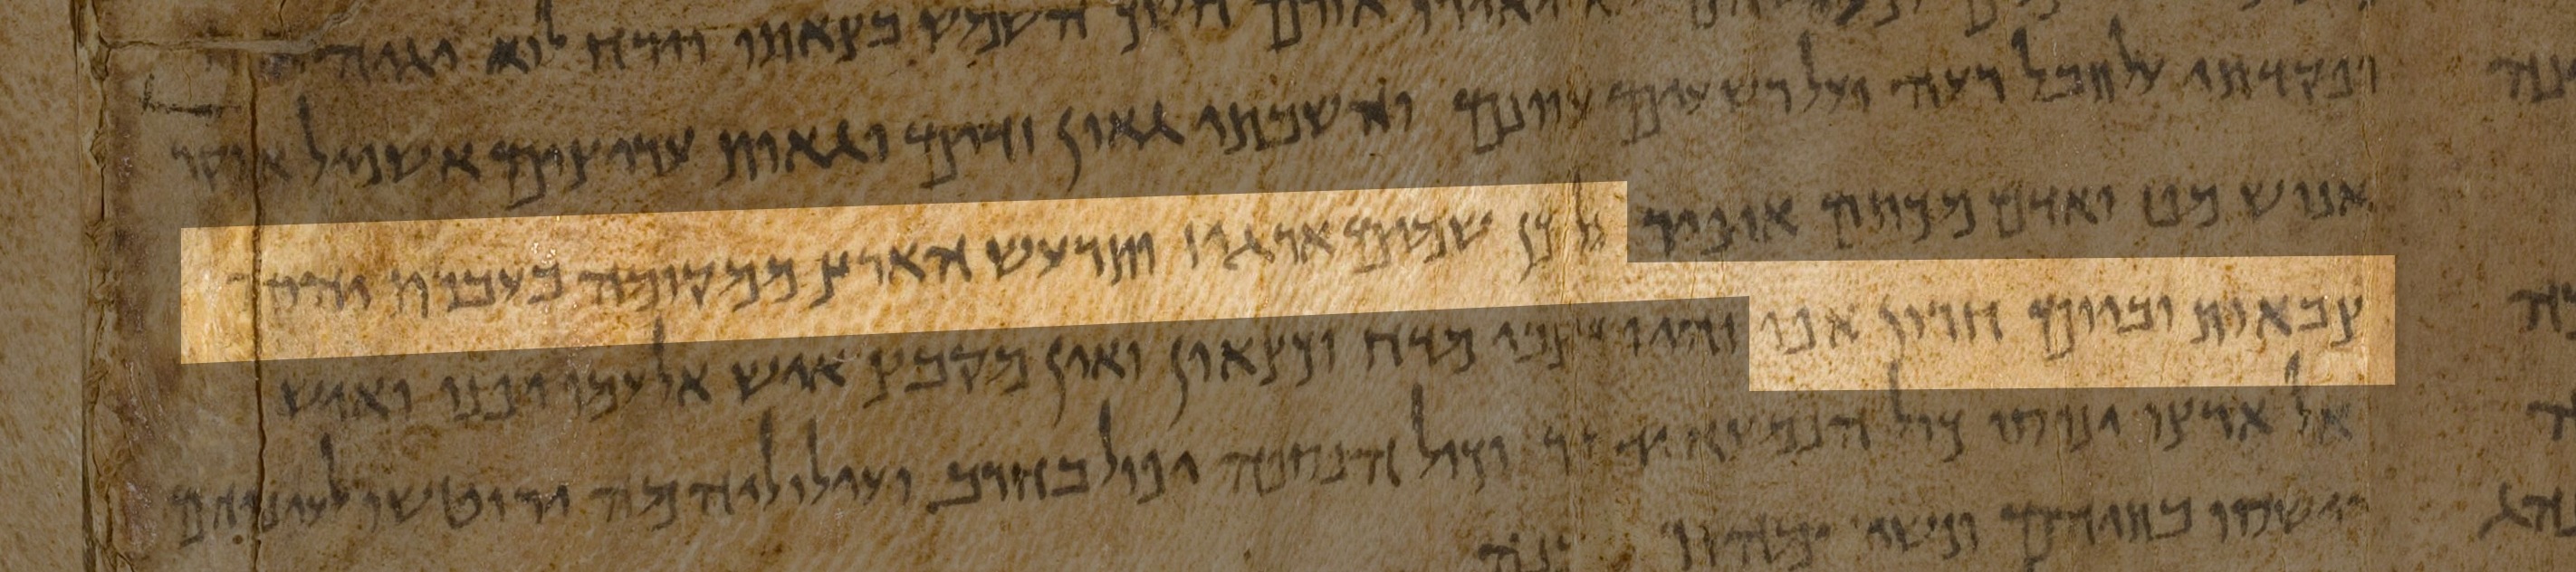 אורם חשך השמש בצאתו וירח לוא יגיה
ופקדתי על תבל רעה ועל רשעים עוונם והשבתי גאון זדים וגאות עריצים אשפיל אוקר
אנוש מפז ואדם מכתם אופיר על כן שמים ארגיז ותרעש הארץ ממקומה בעברת יהוה
צבאות וביום חרון אפו והיו כצבי מדח וכצאון ואין מקבץ איש אל עמו יפנו ואיש
אל ארצו ינוסו כול הנמצא ידקר וכול הנספה יפול בחרב ועילוליהמה ירוטשו לעיניהם
וישסו בתיהם